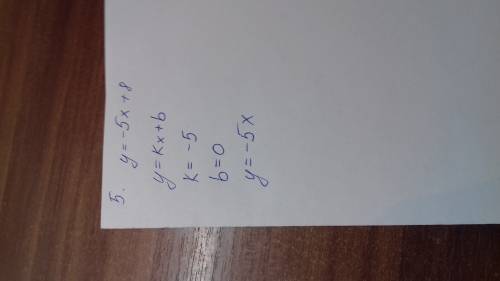 5. y = -5x + 8
y = kx + b
k = -5
b = 0
y = -5x